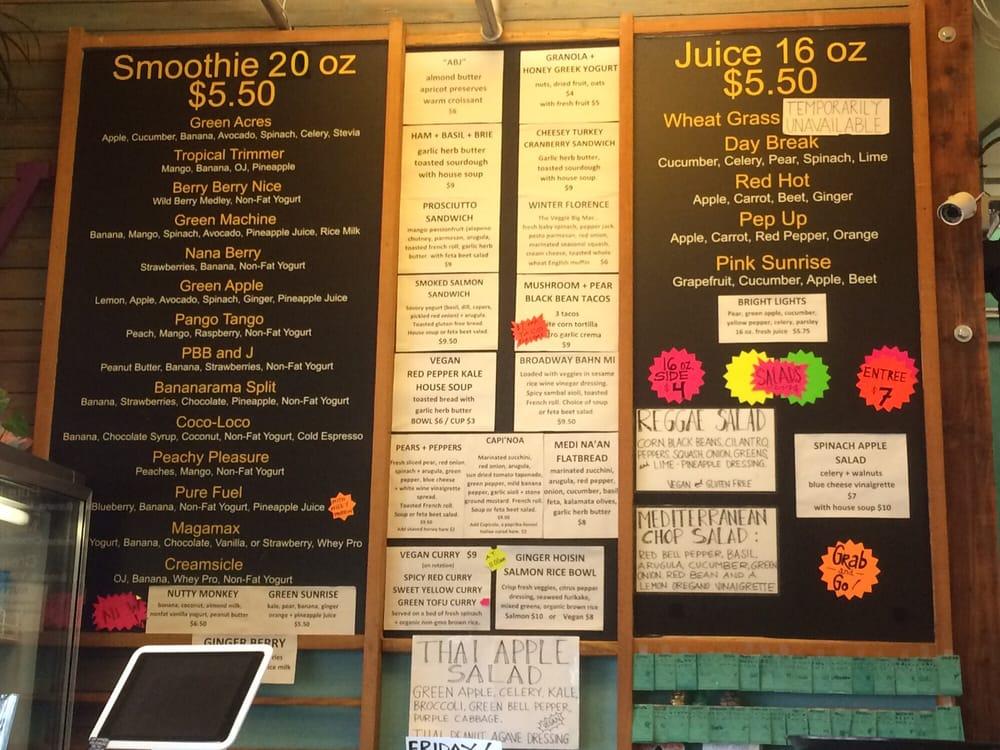 Smoothie 20 oz
$5.50
Green Acres
Apple, Cucumber, Banana, Avocado, Spinach, Celery, Stevia
Tropical Trimmer
Mango, Banana, OJ, Pineapple
Berry Berry Nice
Wild Berry Medley, Non-Fat Yogurt
Green Machine
Banana, Mango, Spinach, Avocado, Pineapple Juice, Rice Milk
Nana Berry
Strawberries, Banana, Non-Fat Yogurt
Green Apple
Lemon, Apple, Avocado, Spinach, Ginger, Pineapple Juice
Pango Tango
Peach, Mango, Raspberry, Non-Fat Yogurt
PBB and J
Peanut Butter, Banana, Strawberries, Non-Fat Yogurt
Bananarama Split
Banana, Strawberries, Chocolate, Pineapple, Non-Fat Yogurt
Coco-Loco
Banana, Chocolate Syrup, Coconut, Non-Fat Yogurt, Cold Espresso
Peachy Pleasure
Peaches, Mango, Non-Fat Yogurt
Pure Fuel
Blueberry, Banana, Non-Fat Yogurt, Pineapple Juice
Magamax
Yogurt, Banana, Chocolate, Vanilla, or Strawberry, Whey Pro
Creamsicle
OJ, Banana, Whey Pro, Non-Fat Yogurt
NUTTY MONKEY
banana, coconut, almond milk,
nonfat vanilla yogurt, peanut butter
$6.50
GREEN SUNRISE
kale, pear, banana, ginger
orange + pineapple juice
$5.50
GINGER BERRY
rice milk
"ABJ"
almond butter
apricot preserves
warm croissant
$6
GRANOLA +
HONEY GREEK YOGURT
nuts, dried fruit, oats
$4
with fresh fruit $5
HAM + BASIL + BRIE
garlic herb butter
toasted sourdough
with house soup
$9
CHEESEY TURKEY
CRANBERRY SANDWICH
Garlic herb butter,
toasted sourdough
with house soup.
$9
PROSCIUTTO
SANDWICH
mango passionfruit jalapeno
chutney, parmesan, arugula,
toasted french roll, garlic herb
butter with feta beet salad
$9
WINTER FLORENCE
The Veggie Big Mac..
fresh baby spinach, pepper jack,
pesto parmesan, red onion,
marinated seasonal squash,
cream cheese, toasted whole
wheat English muffin $6
SMOKED SALMON
SANDWICH
Savory yogurt (basil, dill, capers,
pickled red onion) + arugula.
Toasted gluten free bread.
House soup or feta beet salad.
$9.50
MUSHROOM + PEAR
BLACK BEAN TACOS
3 tacos
corn tortilla
garlic crema
$9
VEGAN
RED PEPPER KALE
HOUSE SOUP
toasted bread with
garlic herb butter
BOWL $6 / CUP $3
BROADWAY BAHN MI
Loaded with veggies in sesame
rice wine vinegar dressing.
Spicy sambal aioli, toasted
French roll. Choice of soup
or feta beet salad.
$9.50
PEARS + PEPPERS
Fresh sliced pear, red onion,
spinach + arugula, green
pepper, blue cheese
+ white wine vinaigrette
spread.
Toasted French roll.
Soup or feta beet salad.
$9.50
CAPI'NOA
Marinated zucchini,
red onion, arugula,
sun dried tomato tapenade,
green pepper, mild banana
pepper, garlic aioli + stone
ground mustard. French roll.
Soup or feta beet salad.
$9.50
MEDI NA'AN
FLATBREAD
marinated zucchini,
arugula, red pepper,
onion, cucumber, basil
feta, kalamata olives,
garlic herb butter
$8
VEGAN CURRY $9
(on rotation)
SPICY RED CURRY
SWEET YELLOW CURRY
GREEN TOFU CURRY
Served on a bed of fresh spinach
+ organic non-gmo brown rice.
GINGER HOISIN
SALMON RICE BOWL
Crisp fresh veggies, citrus pepper
dressing, seaweed furikake,
mixed greens, organic brown rice
Salmon $10 or Vegan $8
THAI APPLE
SALAD
GREEN APPLE, CELERY, KALE,
BROCCOLI, GREEN BELL PEPPER,
PURPLE CABBAGE.
VEGAN
THAI PEANUT AGAVE DRESSING
FRIDAY!
Juice 16 oz
$5.50
Wheat Grass
TEMPORARILY
UNAVAILABLE
Day Break
Cucumber, Celery, Pear, Spinach, Lime
Red Hot
Apple, Carrot, Beet, Ginger
Pep Up
Apple, Carrot, Red Pepper, Orange
Pink Sunrise
Grapefruit, Cucumber, Apple, Beet
BRIGHT LIGHTS
Pear, green apple, cucumber,
yellow pepper, celery, parsley
16 oz. fresh juice $5.75
16 OZ.
SIDE
$4
SALADS
ENTREE
$7
REGGAE SALAD
CORN, BLACK BEANS, CILANTRO,
PEPPERS, SQUASH, ONION, GREENS,
and LIME-PINEAPPLE DRESSING.
VEGAN and GLUTEN FREE
SPINACH APPLE
SALAD
celery + walnuts
blue cheese vinaigrette
$7
with house soup $10
MEDITERRANEAN
CHOP SALAD:
RED BELL PEPPER, BASIL,
ARUGULA, CUCUMBER, GREEN
ONION, RED BEAN AND A
LEMON OREGANO VINAIGRETTE
Grab
and
Go!